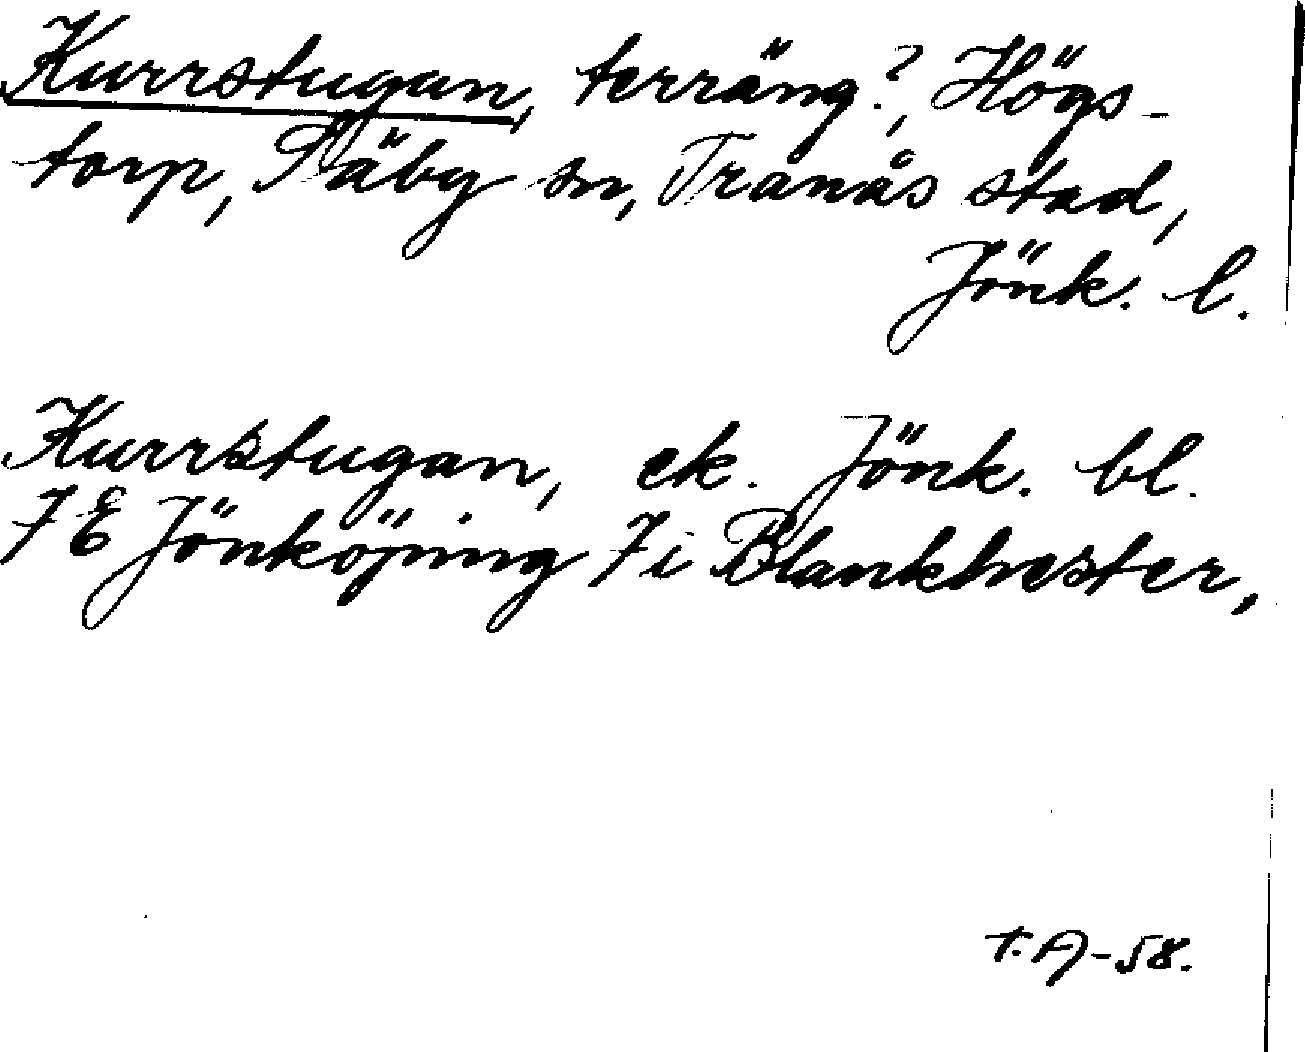 Kurrstugan, terräng?, Högs-
torp, Säby sn, Tranås stad,
Jönk. l.
Kurrstugan, ek. Jönk. bl.
7E Jönköping 7i Blankhester,
T.A-58.